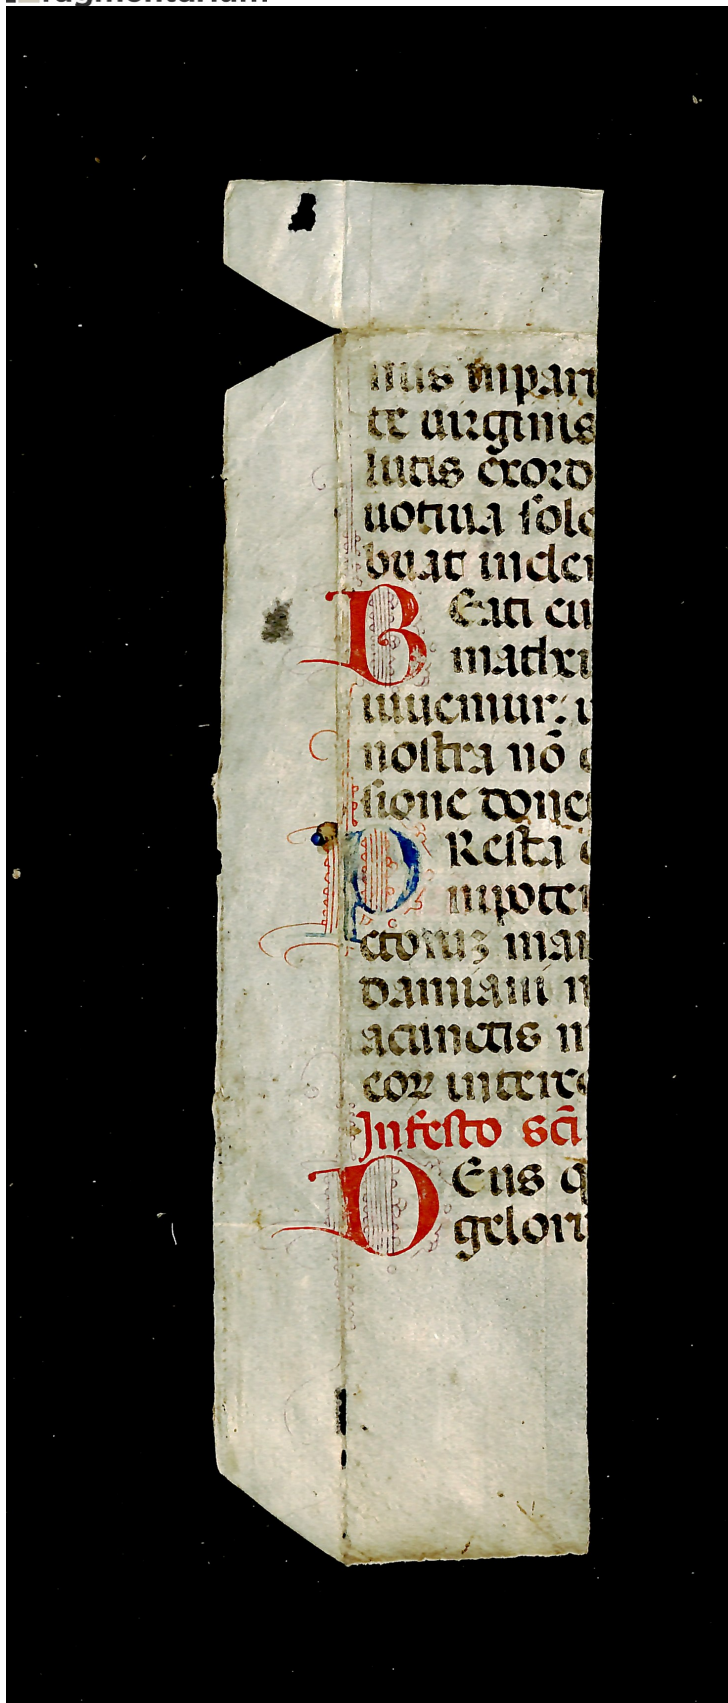 nus inpart
te uirginis
lutis exord
uotiua sole
buat incler
Eati eu
mathei
iuuemur: u
nostra nõ 
sione donet
PResta 
nipoter
ctoruz mar
damiani n
acunctis m
eoꝝ interce
Infesto sc̃i
DEus q
gelorum